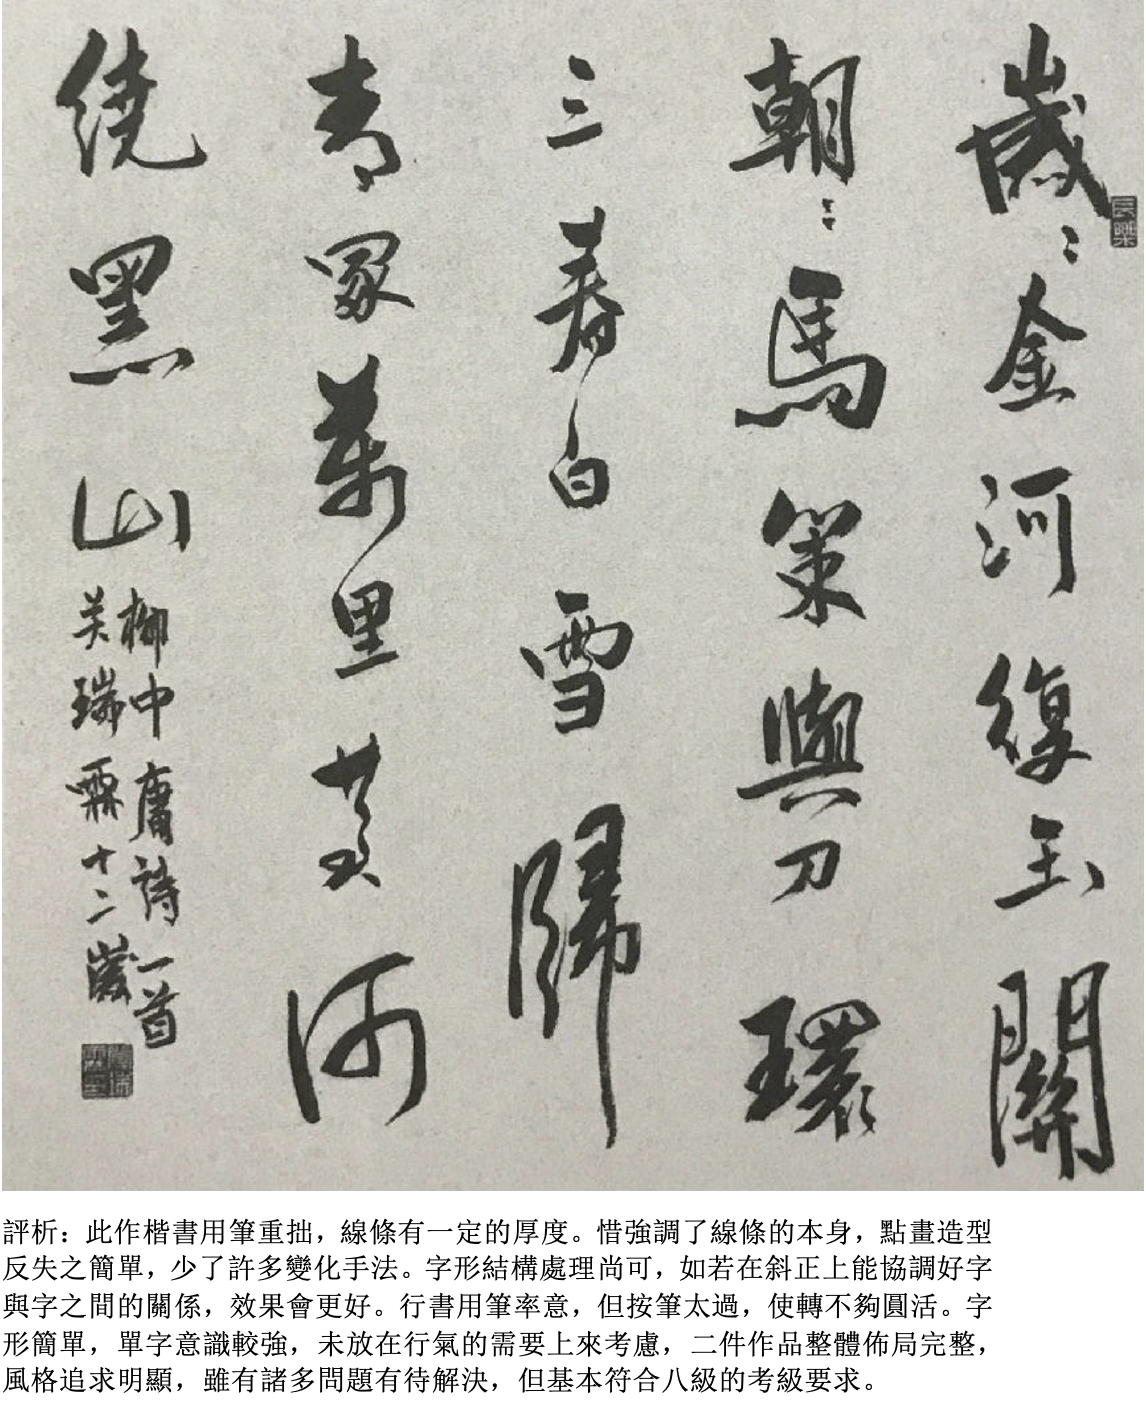 歲〻金河復玉關
朝〻馬策與刀環
三春白雪歸
青冢萬里黃河
繞黑山
柳中庸詩一首
吳瑞霖十二歲
評析：此作楷書用筆重拙，線條有一定的厚度。惜強調了線條的本身，點畫造型
反失之簡單，少了許多變化手法。字形結構處理尚可，如若在斜正上能協調好字
與字之間的關係，效果會更好。行書用筆率意，但按筆太過，使轉不夠圓活。字
形簡單，單字意識較強，未放在行氣的需要上來考慮，二件作品整體佈局完整，
風格追求明顯，雖有諸多問題有待解決，但基本符合八級的考級要求。